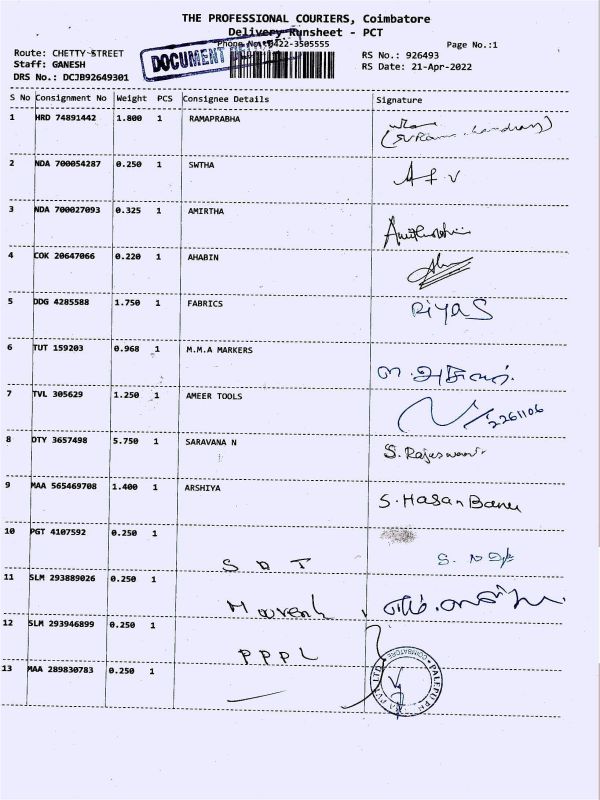 THE PROFESSIONAL COURIERS, Coimbatore
Delivery Runsheet - PCT
Phone No.:0422-3505555
Page No.:1
Route: CHETTY STREET
Staff: GANESH
DRS No.: DCJB92649301
DOCUMENT
RS No.: 926493
RS Date: 21-Apr-2022
S No Consignment No Weight PCS Consignee Details Signature
1 HRD 74891442 1.800 1 RAMAPRABHA
2 NDA 700054287 0.250 1 SWTHA A F V
3 NDA 700027093 0.325 1 AMIRTHA
4 COK 20647066 0.220 1 AHABIN
5 DDG 4285588 1.750 1 FABRICS RiYaS
6 TUT 159203 0.968 1 M.M.A MARKERS
7 TVL 305629 1.250 1 AMEER TOOLS 2261106
8 DTY 3657498 5.750 1 SARAVANA N S. Rajeswari
9 MAA 565469708 1.400 1 ARSHIYA S. Hasan Banu
10 PGT 4107592 0.250 1 S D T
11 SLM 293889026 0.250 1
12 SLM 293946899 0.250 1 PPPL
13 MAA 289830783 0.250 1
COIMBATORE